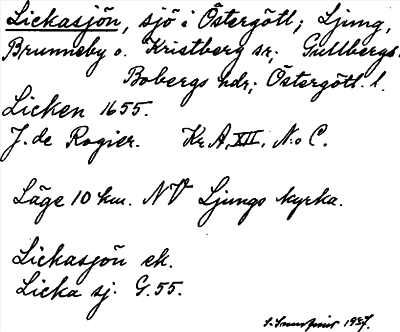 Lickasjön, sjö i Östergötl; Ljung,
Brunneby o. Kristberg sr; Gullbergs.
Bobergs hdr; Östergötl. l.
Licken 1655.
J. de Rogier. Kr. A, XII, N:o C.
Läge 10 km. NV Ljungs kyrka.
Lickasjön ek.
Licka sj. G. 55.
1937.